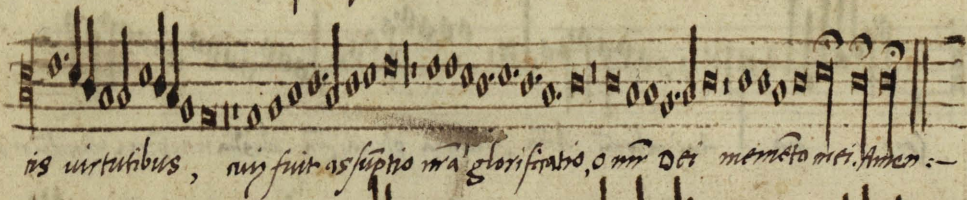 tis virtutibus, cuiꝰ fuit assũptio nr̃a glorificatio, o mr̃ Dei memẽto mei. Amen :~